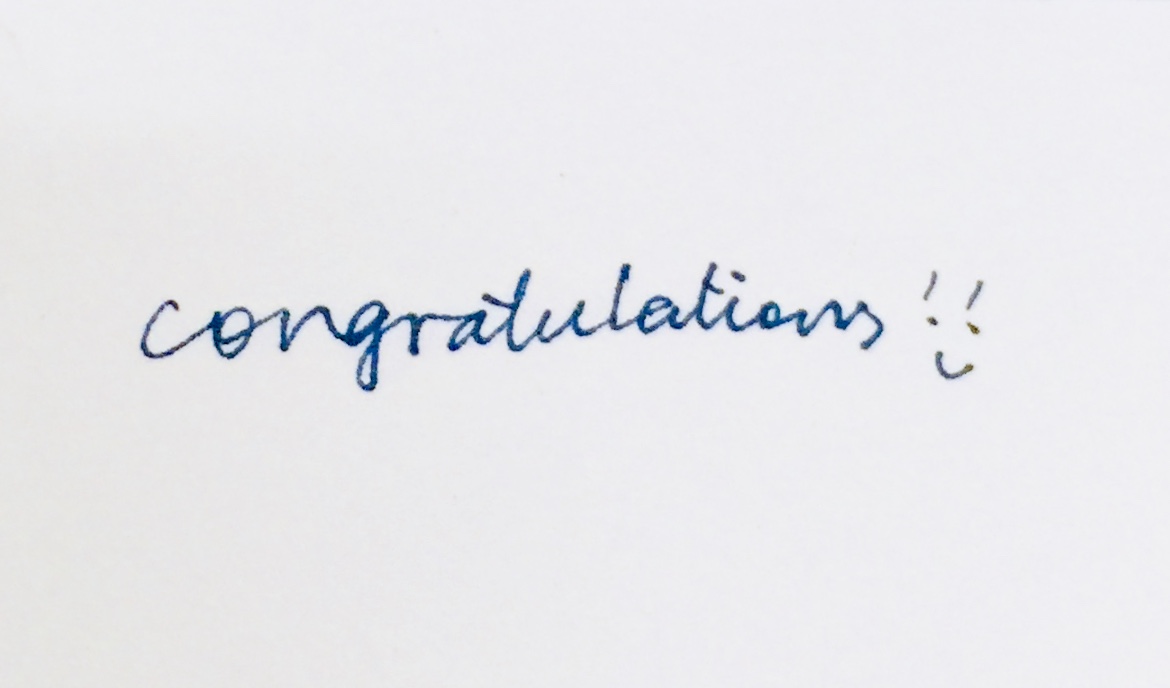 congratulations !!